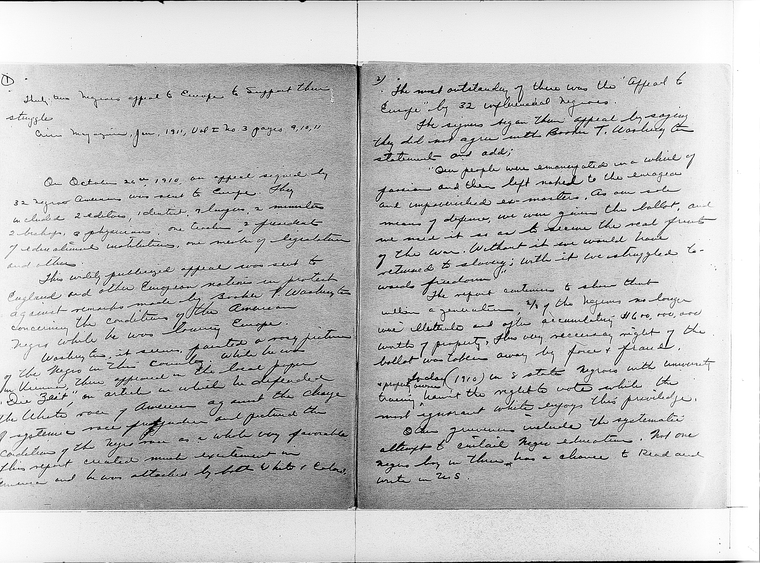 ①
Thirty two Negroes appeal to Europe to Support their
struggle
Crisis Magazine, Jan, 1911, Vol I No 3 pages 9, 10, 11
On October 26th, 1910, an appeal signed by
32 Negro Americans was sent to Europe. They
included 2 editors, 1 dentist, lawyers, 2 ministers
2 bishops, 2 physicians, one teacher, 2 presidents
of educational institutions, one member of legislature
and others.
This widely publicized appeal was sent to
England and other European nations in protest
against remarks made by Booker T. Washington
concerning the conditions of the American
Negro while he was touring Europe.
Washington, it seems, painted a rosy picture
of the Negro in this country, while he was
in Vienna, there appeared in the local paper
"Die Zeit" an article in which he defended
the White race of America against the charge
of systematic race and pictured the
condition of the Negro race as a whole very favorable
This report created much excitement in
America and he was attacked by both White & Colored
2) The most outstanding of these was the "Appeal to
Europe" by 32 influencial Negroes.
The signers began their appeal by saying
they did not agree with Booker T. Washington
statements and add;
"Our people were emancipated in a whirl of
passion and then left naked to the enraged
and impoverished ex-masters. As our sole
means of defense, we were given the ballot, and
we used it so as to secure the real fruits
of the War. Without it we would have
returned to slavery; with it we struggled to-
wards freedom."
The report continues to show that
within a generation, 2/3 of the Negroes no longer
were illiterate and after accumulating $600,000,000
worth of property, this very necessary right of the
ballot was taken away by force & fraud.
Today (1910) in 8 states Negroes with university
& property owners
training haven't the right to vote while the
most ignorant white enjoys this priviledge.
Other grievances include the systematic
attempt to curtail Negro education. Not one
Negro boy in three, has a chance to Read and
write in U.S.